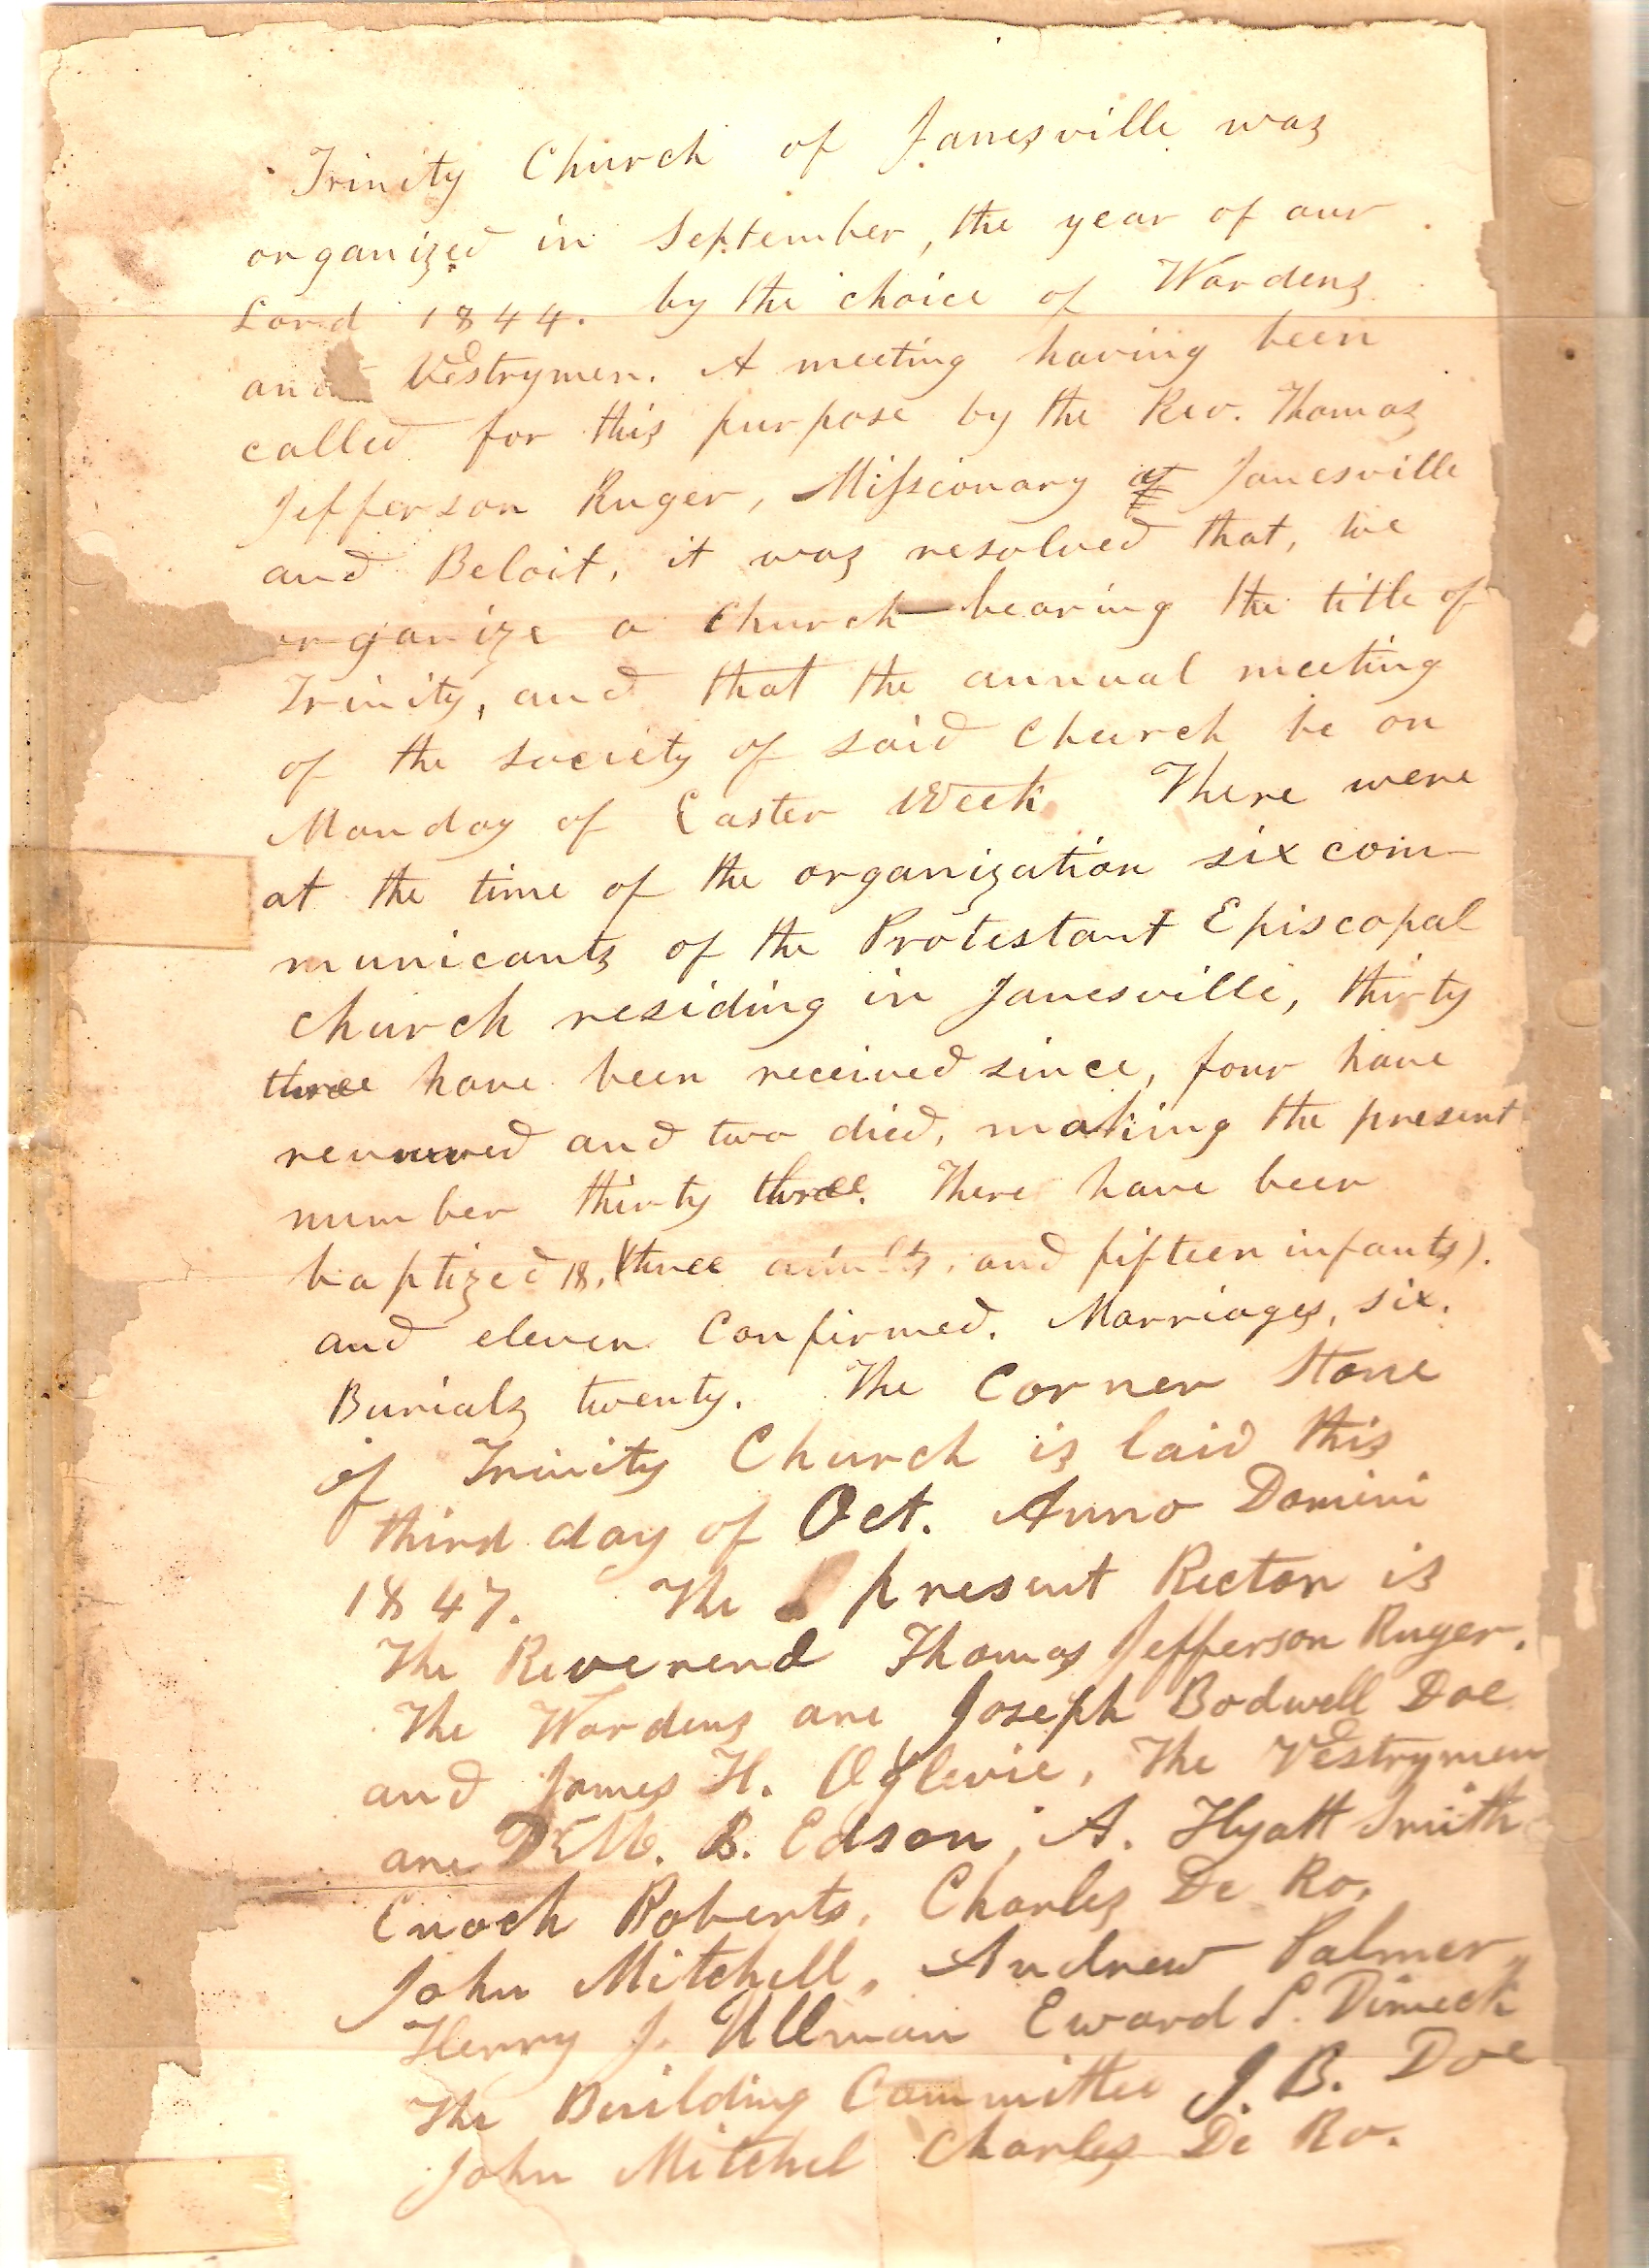 Trinity Church of Janesville was
organized in September, the year of our
Lord 1844. by the choice of Wardens
and Vestrymen. A meeting having been
called for this purpose by the Rev. Thomas
Jefferson Ruger, Missionary at Janesville
and Beloit, it was resolved that, we
organize a Church bearing the title of
Trinity, and that the annual meeting
of the society of said Church be on
Monday of Easter Week. There were
at the time of the organization six com-
municants of the Protestant Episcopal
church residing in Janesville, thirty
three have been received since, four have
removed and two died, making the present
number thirty three. There have been
baptized 18, (three adults, and fifteen infants).
and eleven Confirmed. Marriages, six.
Burials twenty. The Corner Stone
of Trinity Church is laid this
third day of Oct. Anno Domini
1847. The present Rector is
The Reverend Thomas Jefferson Ruger.
The Wardens are Joseph Bodwell Doe
and James H. Oglevie, The Vestrymen
are Dr M. B. Edson, A. Hyatt Smith
Enoch Roberts, Charles De Ro.
John Mitchell, Andrew Palmer,
Henry J. Ullman Eward S. Dimeck
The Building Committee J. B. Doe
John Mitchel Charles De Ro.